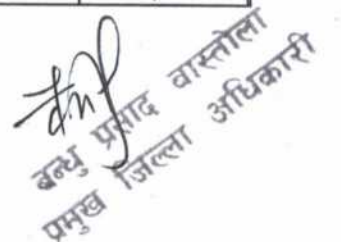 बन्धु प्रसाद वास्तोला
प्रमुख जिल्ला अधिकारी